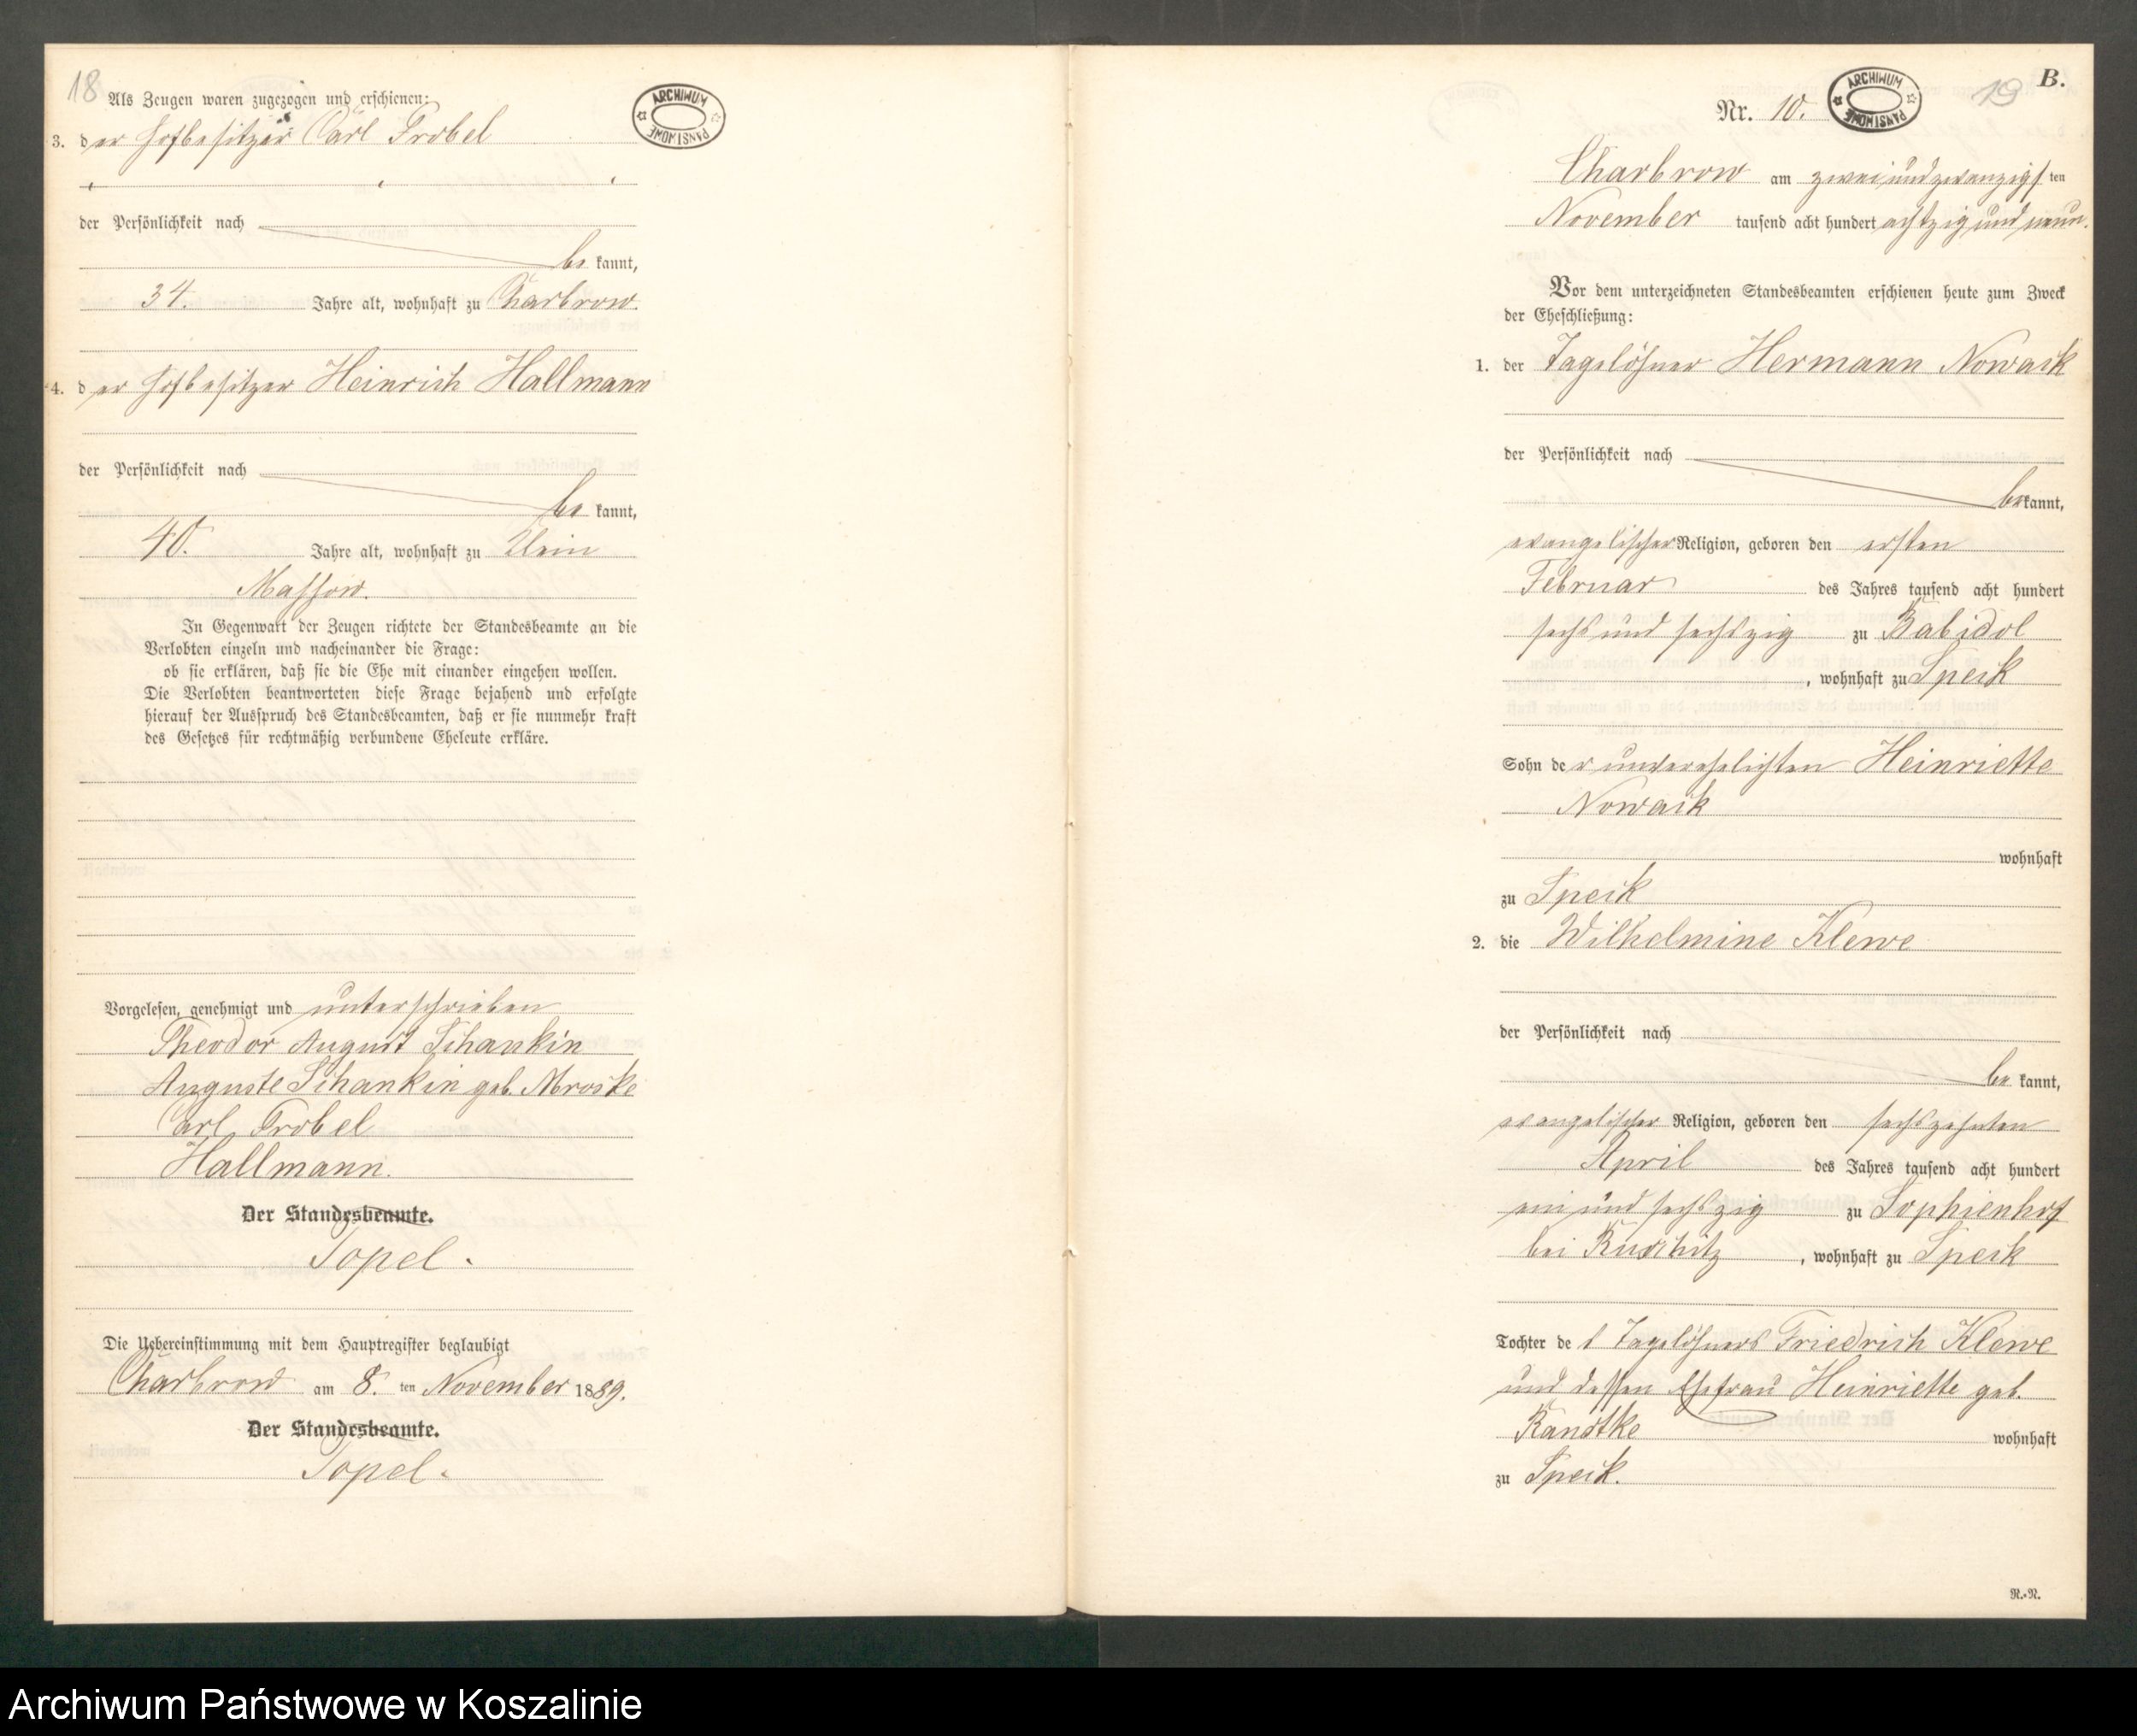 18
Als Zeugen waren zugezogen und erschienen:
3. der Hofbesitzer Carl Probel
der Persönlichkeit nach
be kannt,
34. Jahre alt, wohnhaft zu Charbrow.
4. der Hofbesitzer Heinrich Hallmann
der Persönlichkeit nach
be kannt,
40. Jahre alt, wohnhaft zu Klein
Massow.
In Gegenwart der Zeugen richtete der Standesbeamte an die
Verlobten einzeln und nacheinander die Frage:
ob sie erklären, daß sie die Ehe mit einander eingehen wollen.
Die Verlobten beantworteten diese Frage bejahend und erfolgte
hierauf der Ausspruch des Standesbeamten, daß er sie nunmehr kraft
des Gesetzes für rechtmäßig verbundene Eheleute erkläre.
Vorgelesen, genehmigt und unterschrieben
Theodor August Schankin
Auguste Schankin geb. Mroske
Carl Probel
Hallmann.
Der Standesbeamte.
Topel.
Die Uebereinstimmung mit dem Hauptregister beglaubigt
Charbrow am 8. ten November 1889.
Der Standesbeamte.
Topel.
ARCHIWUM PAŃSTWOWE
B.
19
Nr. 10.
ARCHIWUM PAŃSTWOWE
Charbrow am zweiundzwanzigsten
November tausend acht hundert achtzig und neun.
Vor dem unterzeichneten Standesbeamten erschienen heute zum Zweck
der Eheschließung:
1. der Tagelöhner Hermann Nowack
der Persönlichkeit nach
bekannt,
evangelischer Religion, geboren den ersten
Februar des Jahres tausend acht hundert
sechs und sechszig zu Babidol
, wohnhaft zu Speck
Sohn der unverehelichten Heinriette
Nowack
wohnhaft
zu Speck
2. die Wilhelmine Klewe
der Persönlichkeit nach
be kannt,
evangelischer Religion, geboren den sechszehnten
April des Jahres tausend acht hundert
ein und sechszig zu Sophienhof
bei Ruschütz, wohnhaft zu Speck
Tochter des Tagelöhners Friedrich Klewe
und dessen Ehefrau Heinriette geb.
wohnhaft
zu Speck.
R.-N.
Archiwum Państwowe w Koszalinie